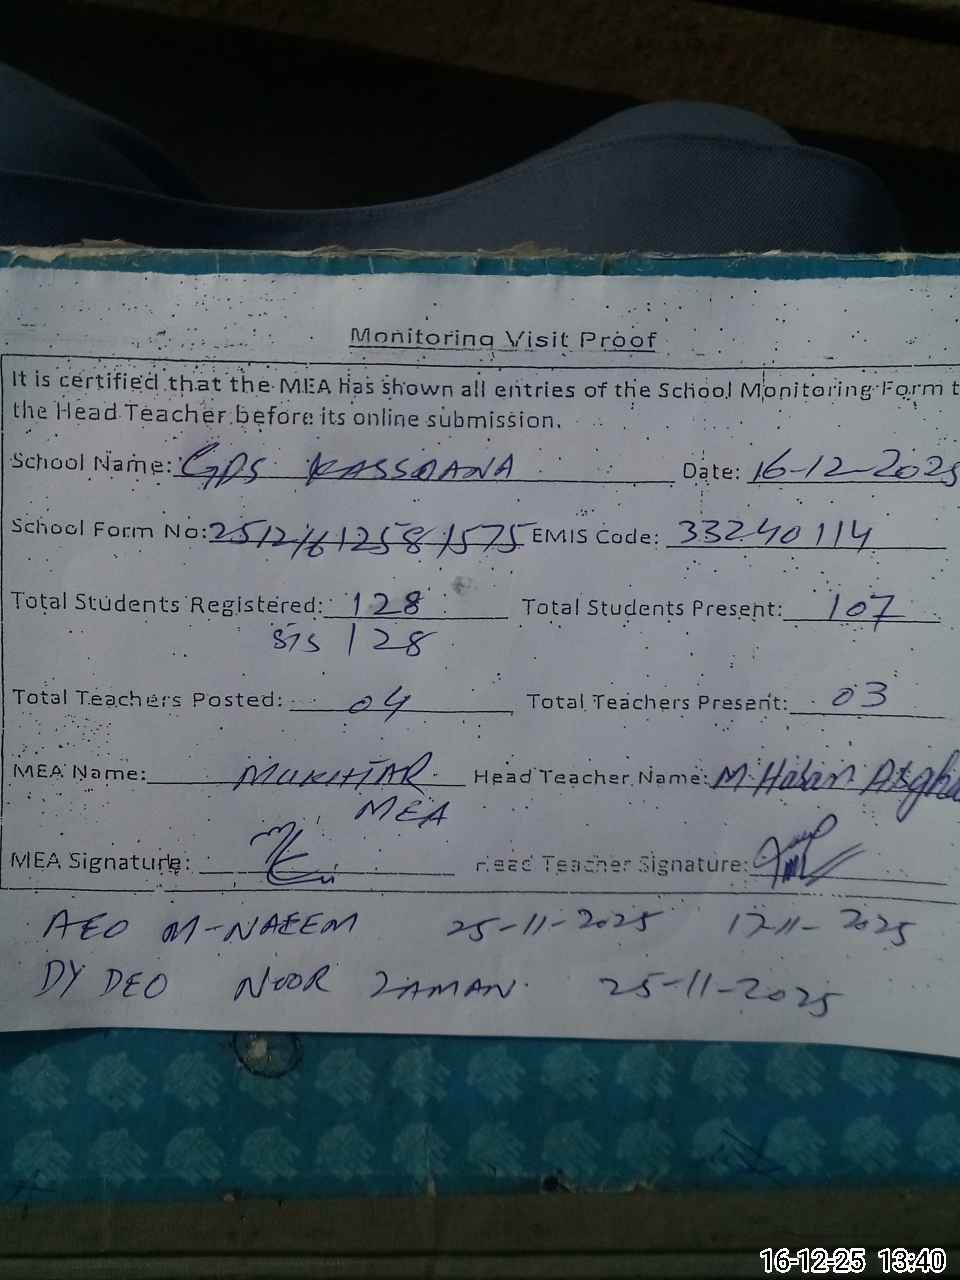 Monitoring Visit Proof
It is certified that the MEA has shown all entries of the School Monitoring Form t
the Head Teacher before its online submission.
School Name: GPS KASSOANA Date: 16-12-2025
School Form No: EMIS Code: 33240114
Total Students Registered: 128 Total Students Present: 107
SIS 128
Total Teachers Posted: 04 Total Teachers Present: 03
MEA Name: MUKHTAR Head Teacher Name: M. Hasan Asgha
MEA
MEA Signature: Head Teacher Signature:
AEO M-NAEEM 25-11-2025 17-11-2025
DY DEO NOOR ZAMAN 25-11-2025
16-12-25 13:40